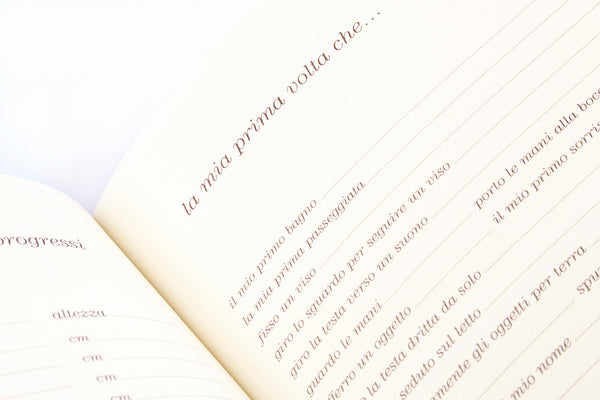 progressi
altezza
cm
cm
cm
la mia prima volta che...
il mio primo bagno
la mia prima passeggiata
fisso un viso
giro lo sguardo per seguire un viso
giro la testa verso un suono
guardo le mani
un oggetto
la testa dritta da solo
seduto sul letto
gli oggetti per terra
mio nome
porto le mani alla
il mio primo